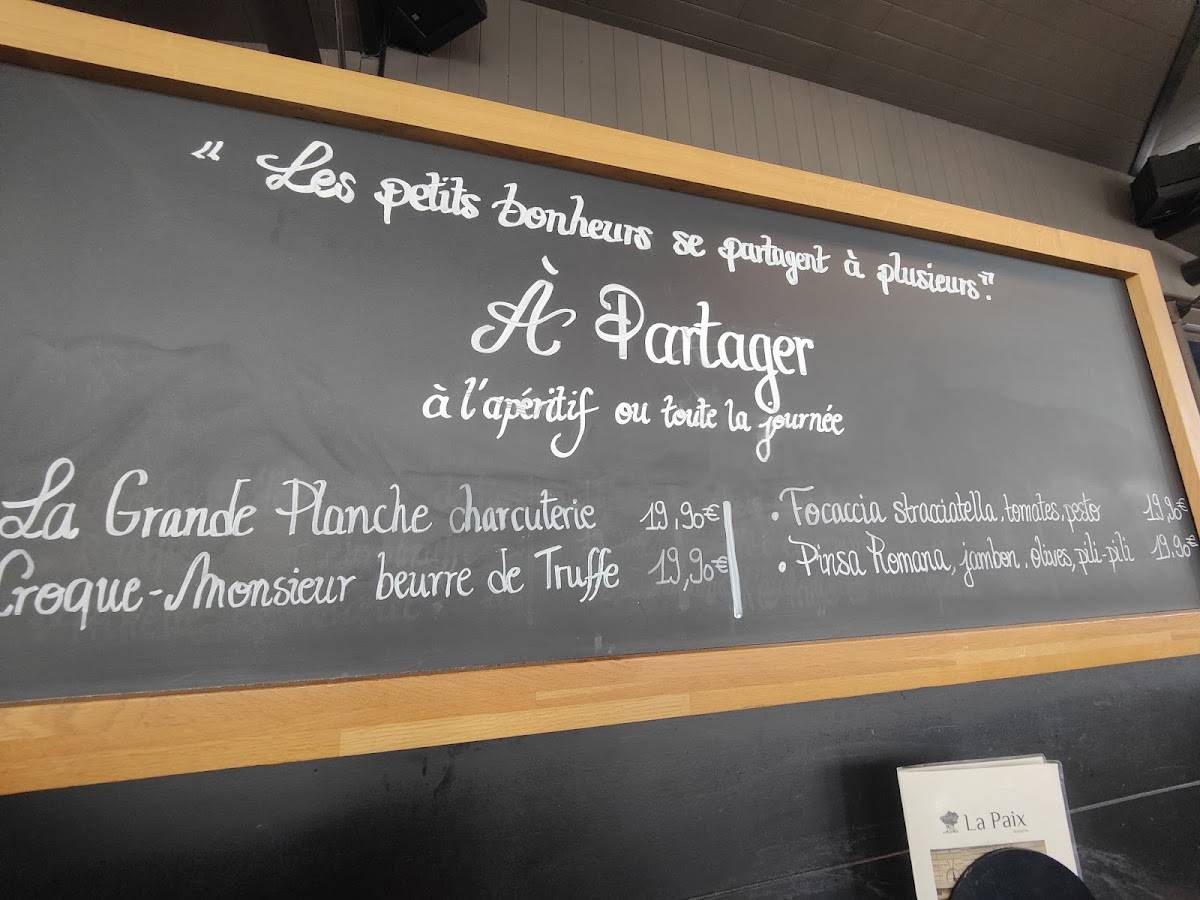 “Les petits bonheurs se partagent à plusieurs”.
À Partager
à l'apéritif ou toute la journée
La Grande Planche charcuterie 19,90€
Croque-Monsieur beurre de Truffe 19,90€
• Focaccia stracciatella, tomates, pesto 19,90€
• Pinsa Romana, jambon, olives, pili-pili 19.90€
La Paix